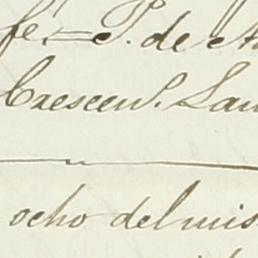 fe.=P. de A
Crescen.º Lau
ocho del mis